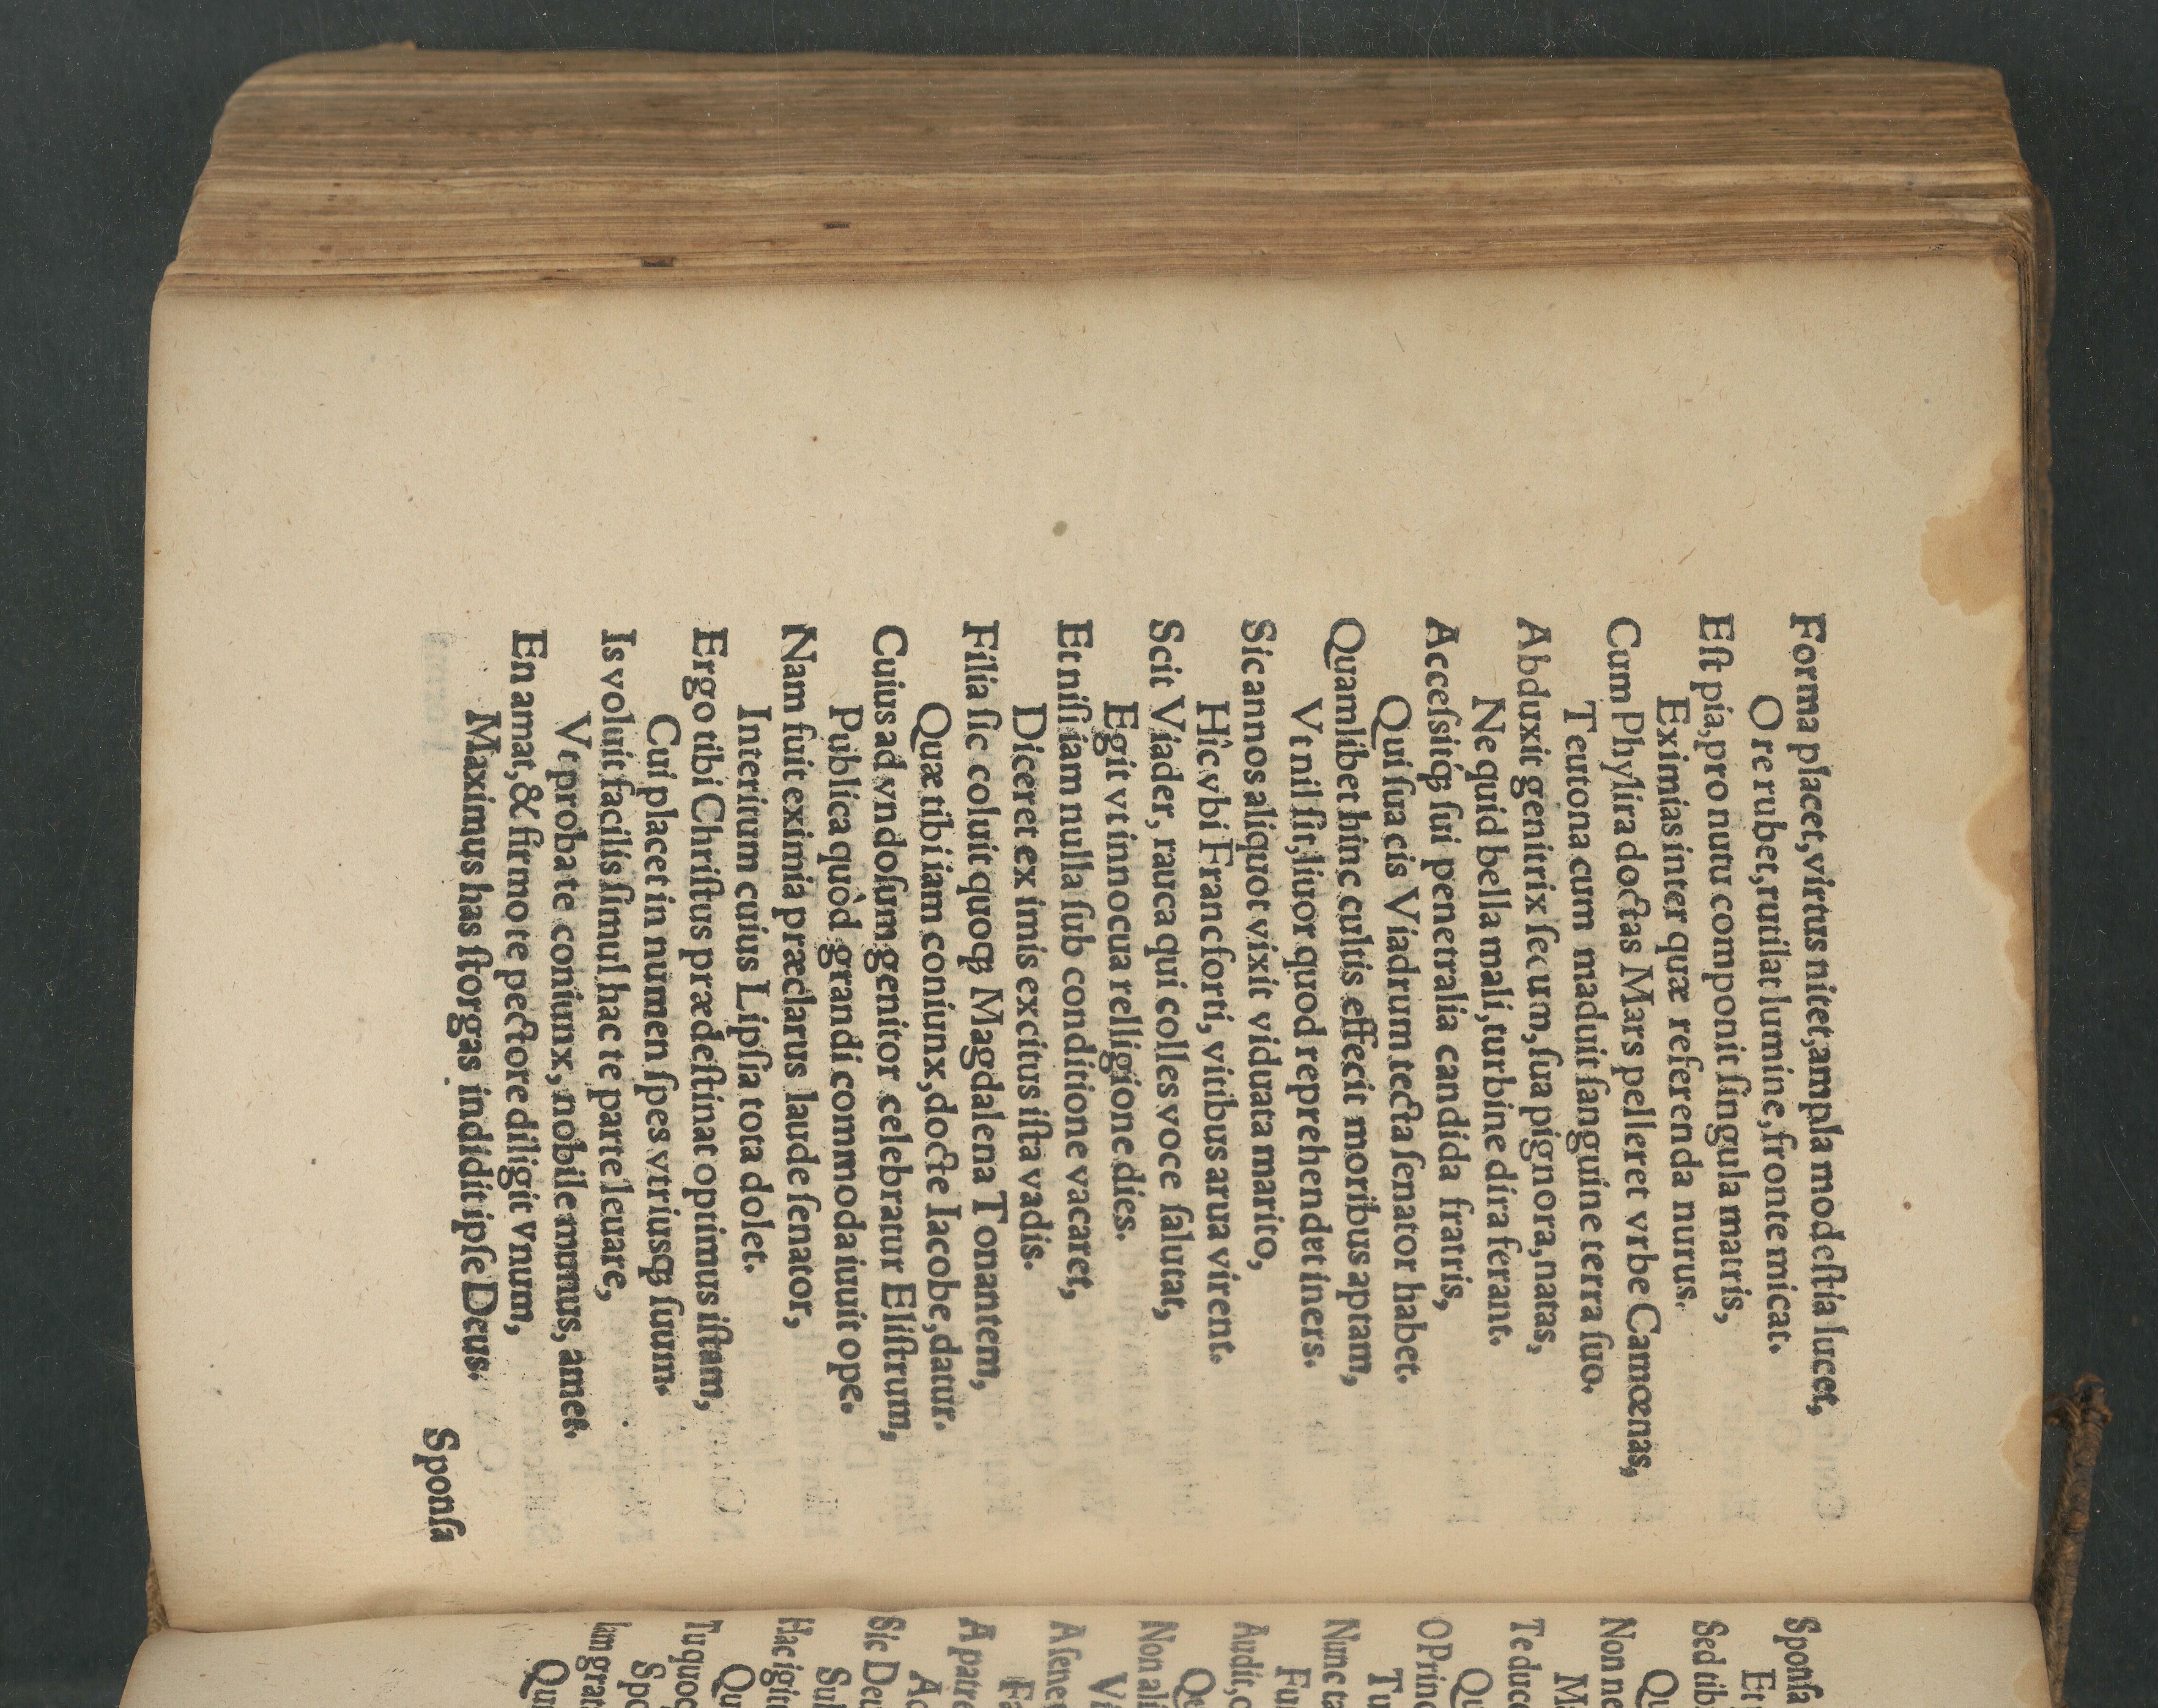 Forma placet, virtus nitet, ampla modeſtia lucet,
Ore rubet, rutilat lumine, fronte micat.
Eſt pia, pro nutu componit ſingula matris,
Eximias inter quæ referenda nurus.
Cum Phylira doctas Mars pelleret vrbe Camœnas,
Teutona cum maduit ſanguine terra ſuo.
Abduxit genitrix ſecum, ſua pignora, natas,
Ne quid bella mali, turbine dira ferant.
Acceſsitqꝫ ſui penetralia candida fratris,
Qui ſua cis Viadrum tecta ſenator habet.
Quamlibet hinc cultis effecit moribus aptam,
Vt nil ſit, liuor quod reprehendat iners.
Sic annos aliquot vixit viduata marito,
Hîc vbi Francforti, vitibus arua virent.
Scit Viader, rauca qui colles voce ſalutat,
Egit vt innocua relligione dies.
Et niſi iam nulla ſub conditione vacaret,
Diceret ex imis excitus iſta vadis.
Filia ſic coluit quoqꝫ Magdalena Tonantem,
Quæ tibi iam coniunx, docte Iacobe, datur.
Cuius ad vndoſum genitor celebratur Eliſtrum,
Publica quòd grandi commoda iuuit ope.
Nam fuit eximia præclarus laude ſenator,
Interitum cuius Lipſia tota dolet.
Ergo tibi Chriſtus prædeſtinat optimus iſtam,
Cui placet in numen ſpes vtriusqꝫ ſuum.
Is voluit facilis ſimul hac te parte leuare,
Vt proba te coniunx, nobile munus, amet.
En amat, & firmo te pectore diligit vnum,
Maximus has ſtorgas indidit ipſe Deus.
Sponſa
Sponſa
Et
Sed tib
Qu
Non ne
M
Te duce
Qu
O Princ
Tu
Nunc ta
Fu
Audit, c
Qu
Non ali
Vi
Aſene
Fa
A patre
Ac
Sic Deu
Sul
Hac igit
Qu
Tu quoc
Spo
Iam grat
Qu